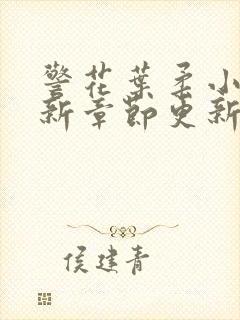 警花叶柔小
新章节更新
侯建青